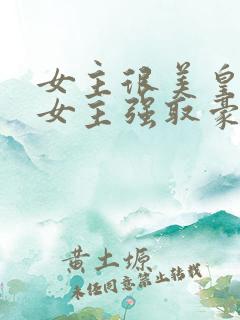 女主很美皇
女主强取豪
黄土塬
未经同意禁止转载